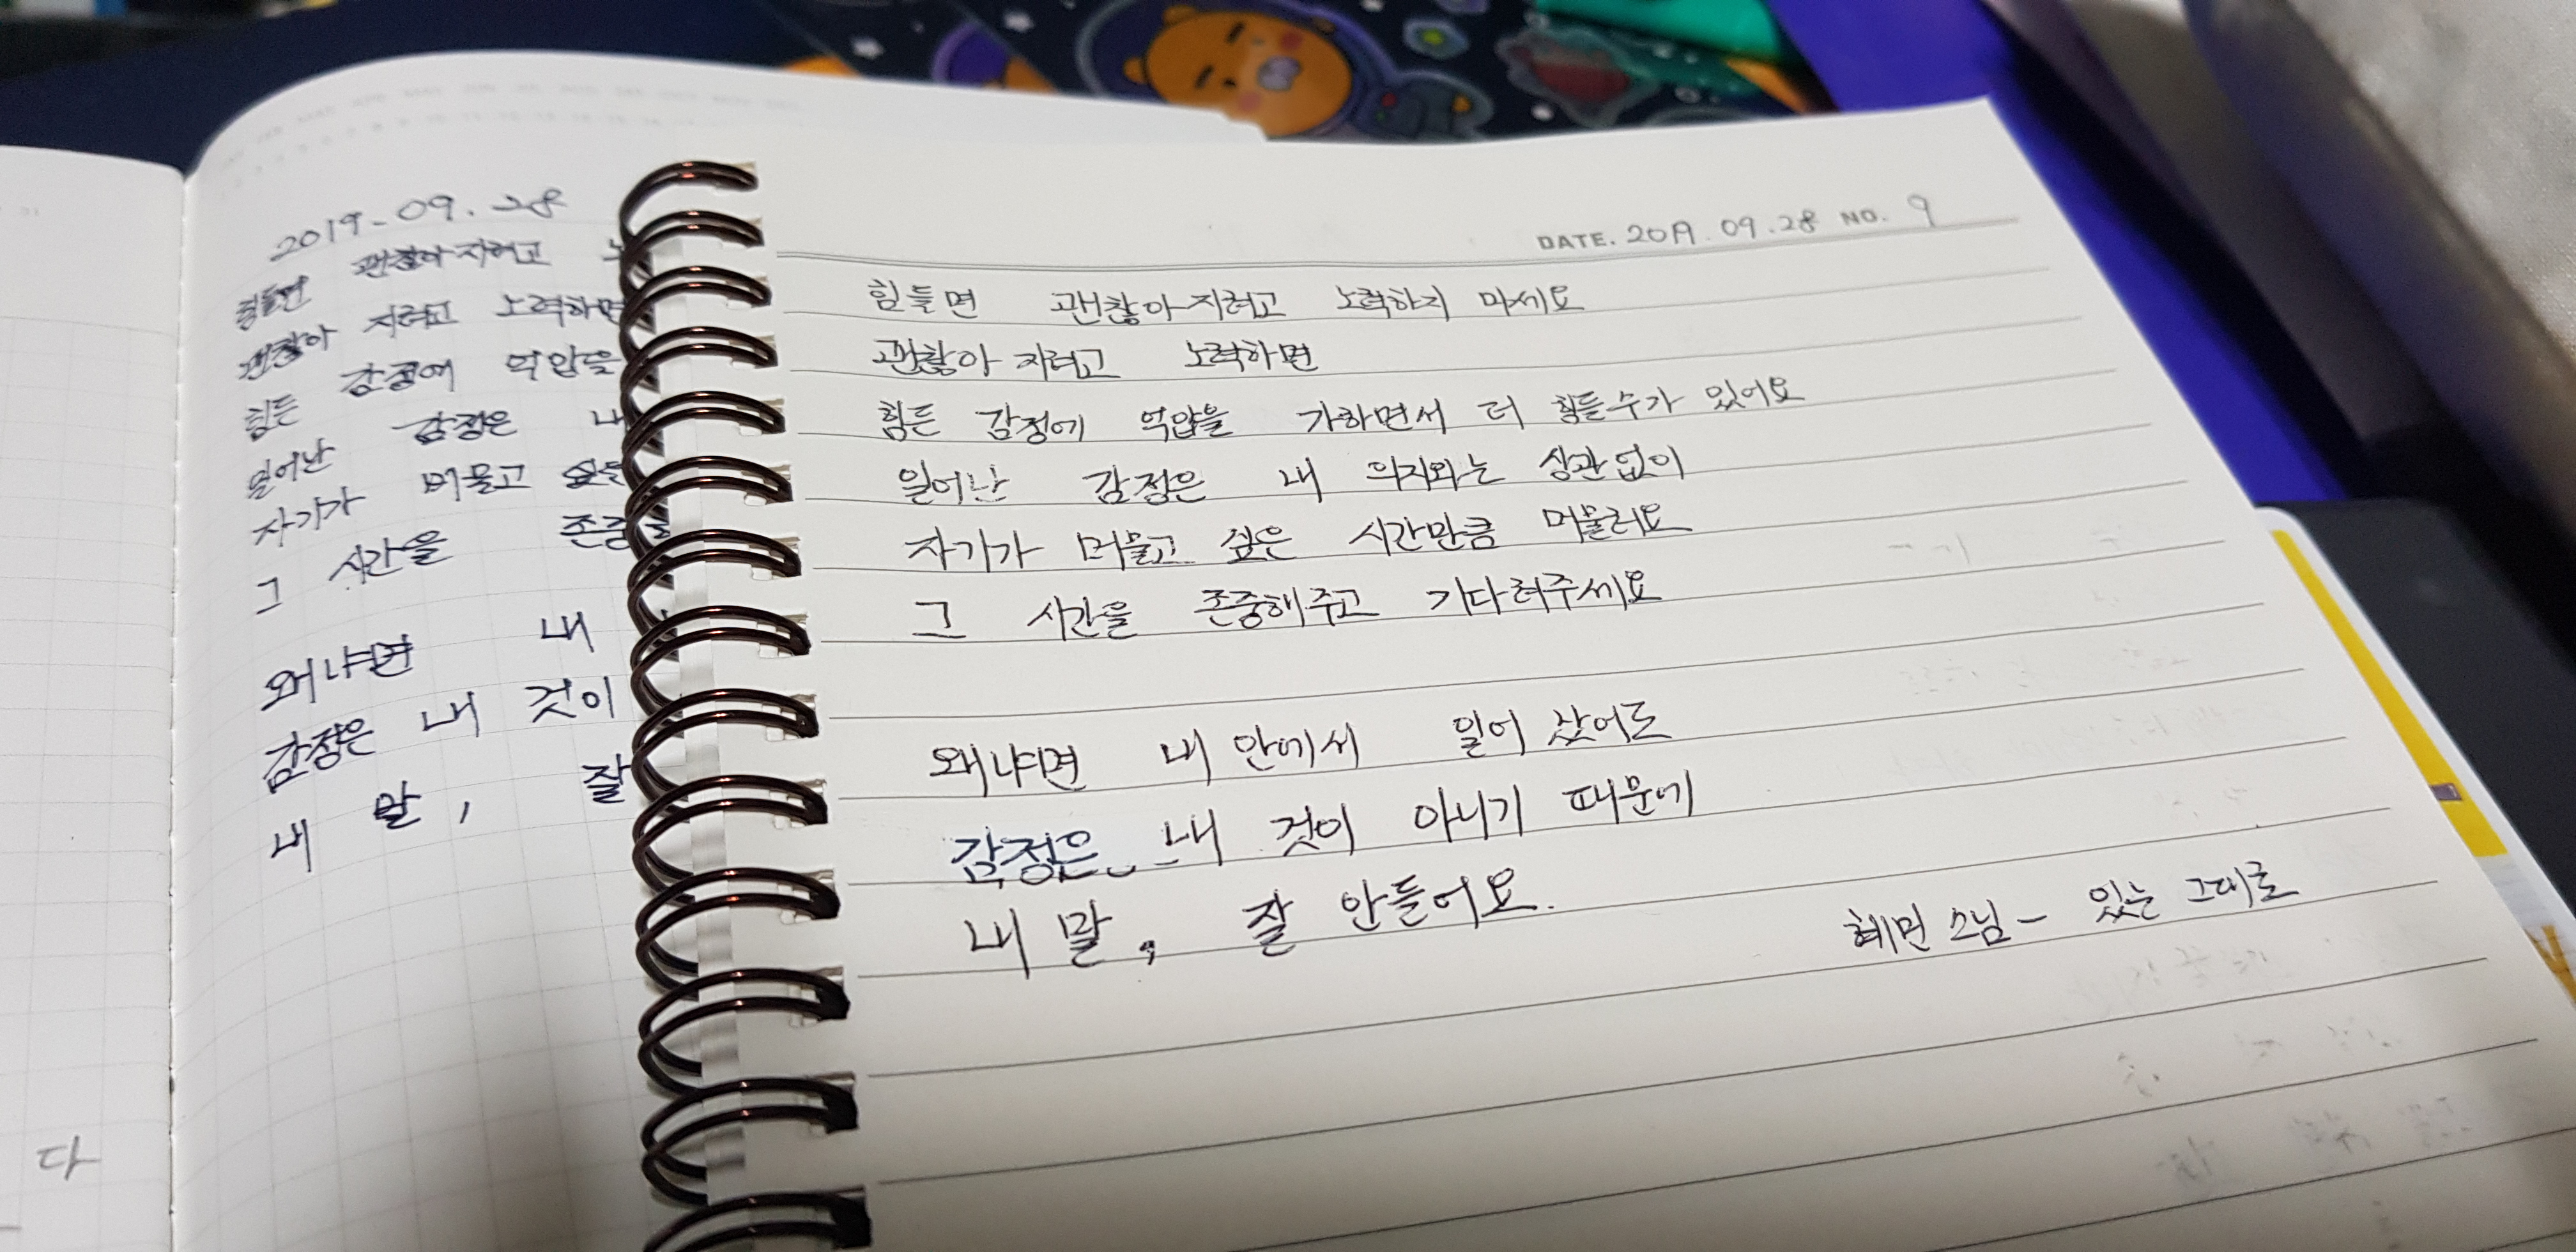 2019-09.28
힘들면 괜찮아지려고
괜찮아 지려고 노력하면
힘든 감정에 억압을
일어난 감정은 내
자기가 머물고 싶은
그 시간을 존중
왜냐면 내
감정은 내 것이
내 말, 잘
다
DATE. 2019.09.28 NO. 9
힘들면 괜찮아지려고 노력하지 마세요
괜찮아 지려고 노력하면
힘든 감정에 억압을 가하면서 더 힘들수가 있어요
일어난 감정은 내 의지와는 상관없이
자기가 머물고 싶은 시간만큼 머물러요
그 시간을 존중해주고 기다려주세요
왜냐면 내 안에서 일어 났어도
감정은 내 것이 아니기 때문에
내 말, 잘 안들어요.
혜민 스님 - 있는 그대로